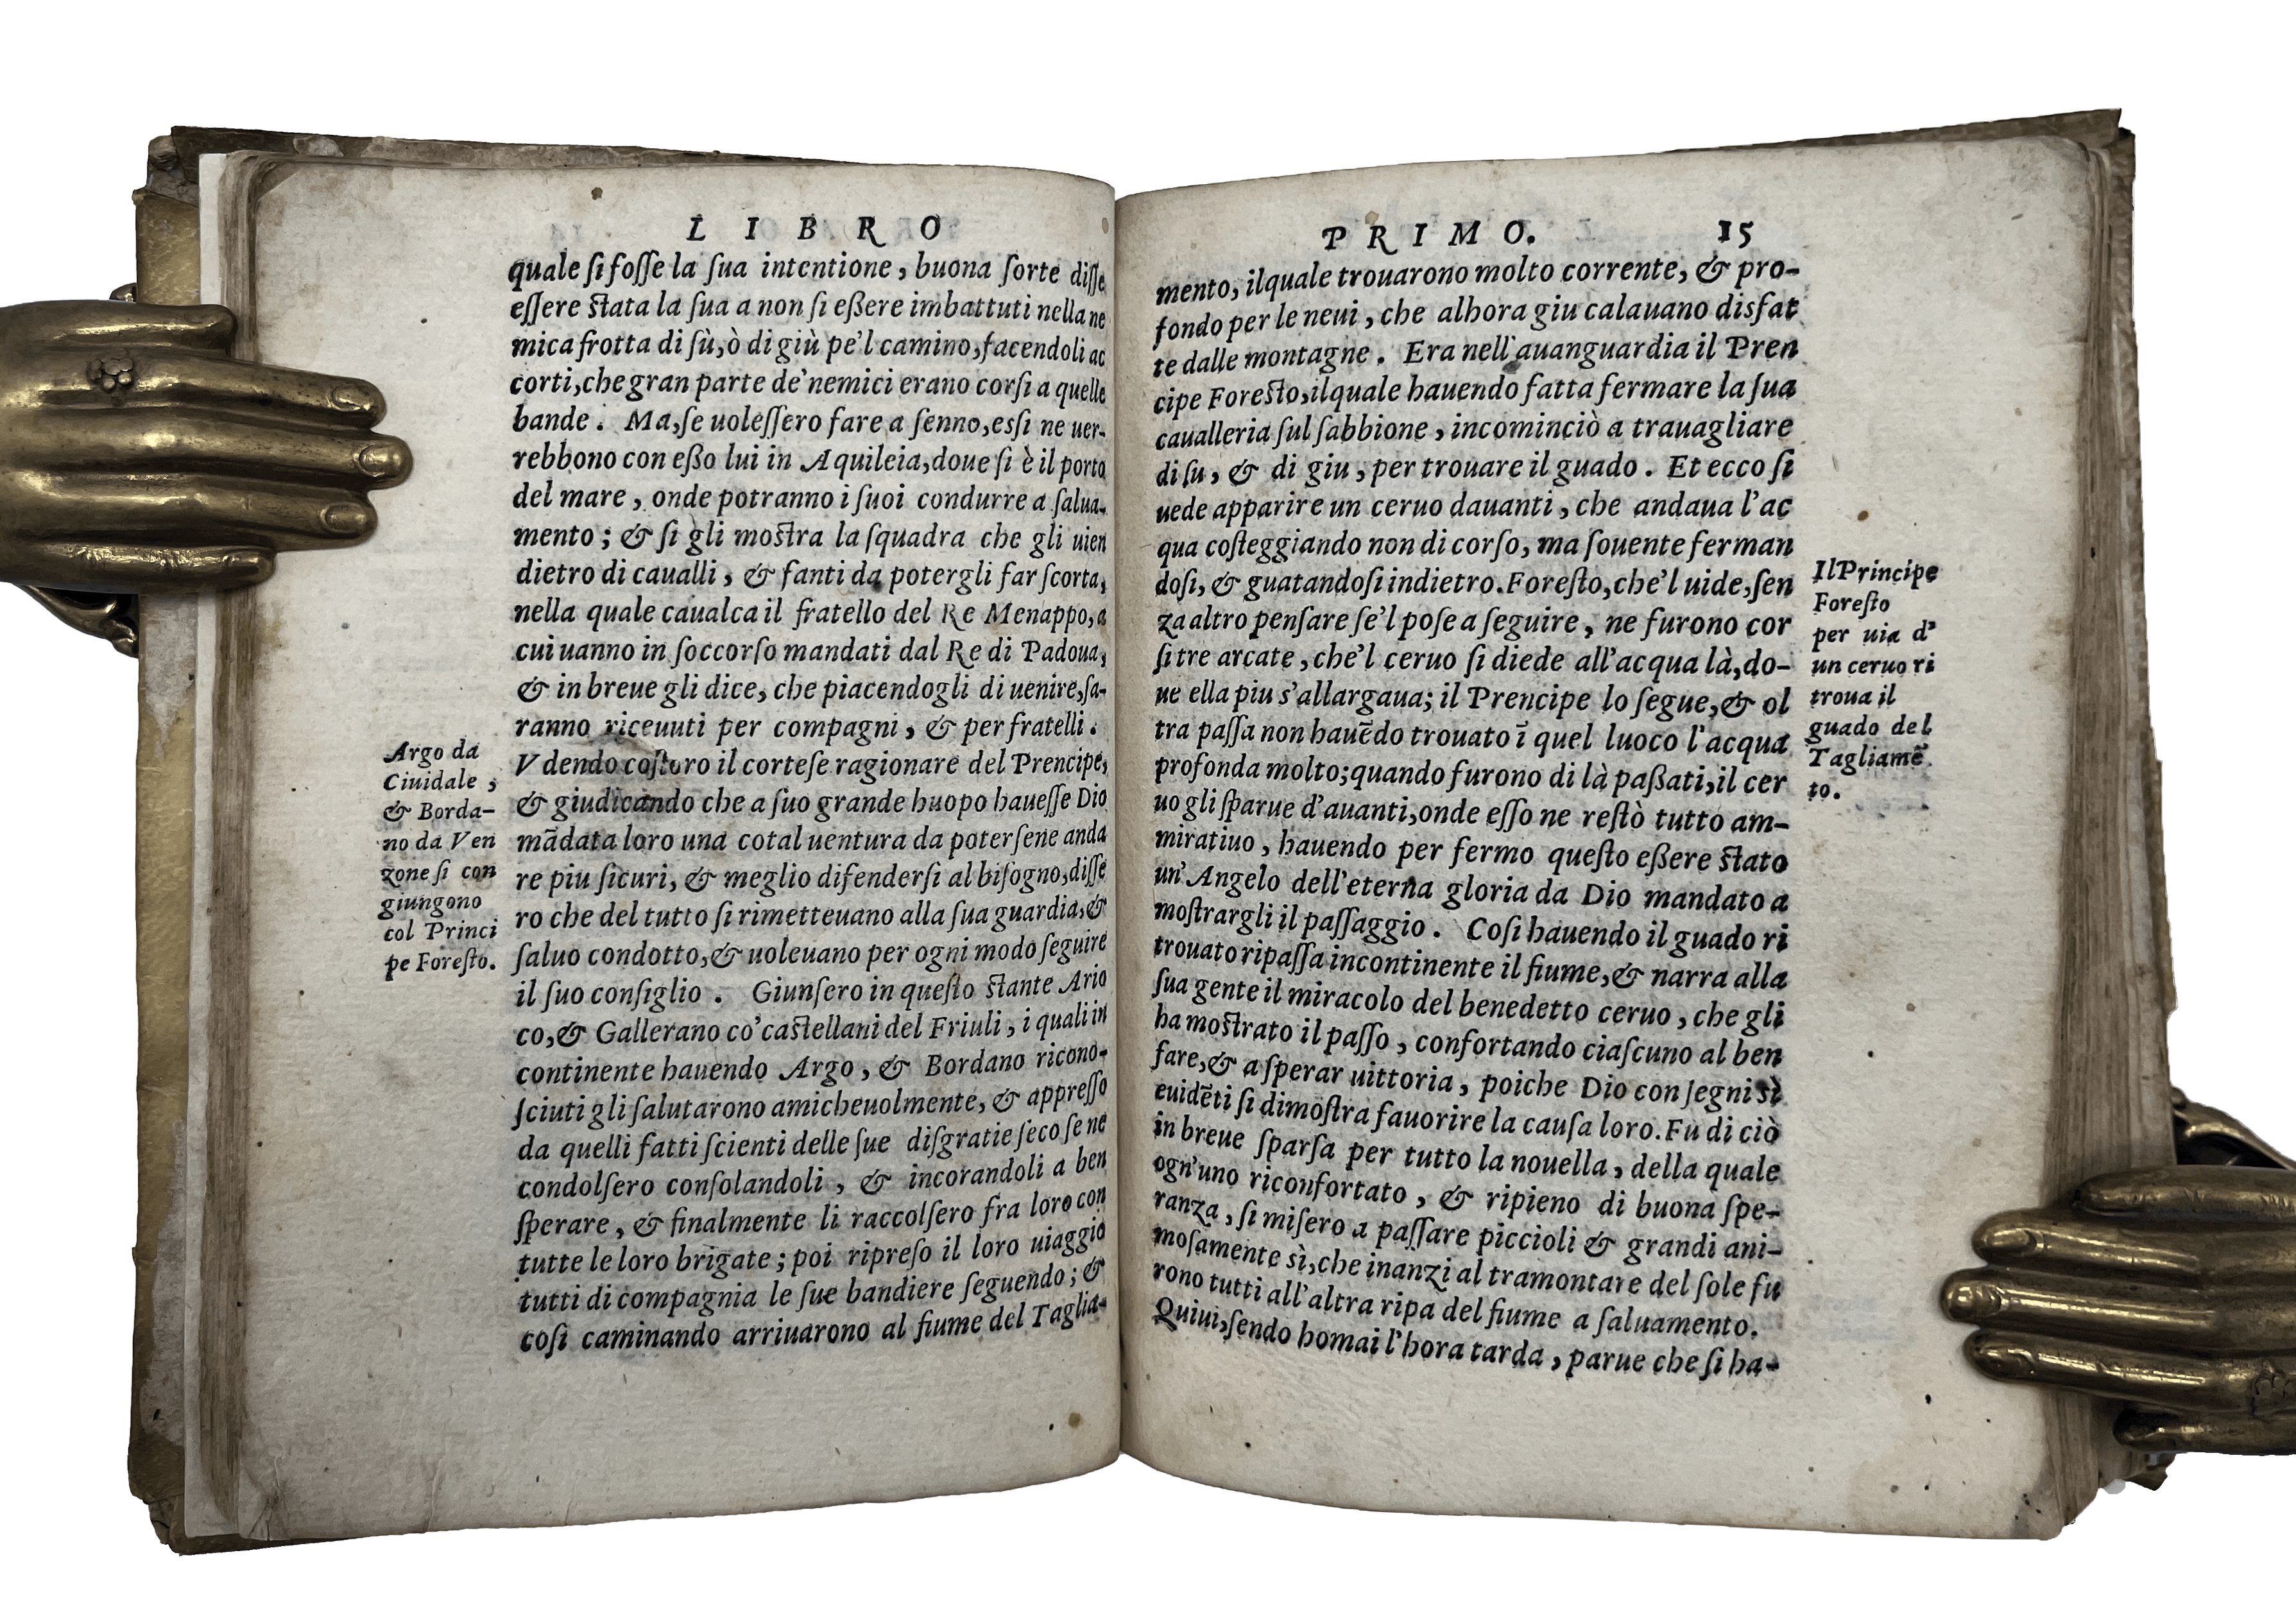 LIBRO
quale ſi foſſe la ſua intentione, buona ſorte diſſe
eſſere ſtata la ſua a non ſi eßere imbattuti nella ne
mica frotta di ſù, ò di giù pe'l camino, facendoli ac
corti, che gran parte de' nemici erano corſi a quelle
bande. Ma, ſe uoleſſero fare a ſenno, eſsi ne uer-
rebbono con eßo lui in Aquileia, doue ſi è il porto
del mare, onde potranno i ſuoi condurre a ſalua-
mento; & ſi gli moſtra la ſquadra che gli uien
dietro di caualli, & fanti da potergli far ſcorta,
nella quale caualca il fratello del Re Menappo, a
cui uanno in ſoccorſo mandati dal Re di Padoua,
& in breue gli dice, che piacendogli di uenire, ſa-
ranno riceuuti per compagni, & per fratelli.
Vdendo coſtoro il corteſe ragionare del Prencipe,
& giudicando che a ſuo grande huopo haueſſe Dio
mãdata loro una cotal uentura da poterſene anda
re piu ſicuri, & meglio difenderſi al biſogno, diſſe
ro che del tutto ſi rimetteuano alla ſua guardia, &
ſaluo condotto, & uoleuano per ogni modo ſeguire
il ſuo conſiglio. Giunſero in queſto ſtante Ario
co, & Gallerano co' caſtellani del Friuli, i quali in
continente hauendo Argo, & Bordano ricono-
ſciuti gli ſalutarono amicheuolmente, & appreſſo
da quelli fatti ſcienti delle ſue diſgratie ſeco ſe ne
condolſero conſolandoli, & incorandoli a ben
ſperare, & finalmente li raccolſero fra loro con
tutte le loro brigate; poi ripreſo il loro uiaggio
tutti di compagnia le ſue bandiere ſeguendo; &
coſi caminando arriuarono al fiume del Taglia-
Argo da
Ciuidale,
& Borda-
no da Ven
zone ſi con
giungono
col Princi
pe Foreſto.
PRIMO. 15
mento, ilquale trouarono molto corrente, & pro-
fondo per le neui, che alhora giu calauano disfat
te dalle montagne. Era nell'auanguardia il Pren
cipe Foreſto, ilquale hauendo fatta fermare la ſua
caualleria ſul ſabbione, incominciò a trauagliare
di ſu, & di giu, per trouare il guado. Et ecco ſi
uede apparire un ceruo dauanti, che andaua l'ac
qua coſteggiando non di corſo, ma ſouente ferman
doſi, & guatandoſi indietro. Foreſto, che'l uide, ſen
za altro penſare ſe'l poſe a ſeguire, ne furono cor
ſi tre arcate, che'l ceruo ſi diede all'acqua là, do-
ue ella piu s'allargaua; il Prencipe lo ſegue, & ol
tra paſſa non hauẽdo trouato ĩ quel luoco l'acqua
profonda molto; quando furono di là paßati, il cer
uo gli ſparue d'auanti, onde eſſo ne reſtò tutto am-
miratiuo, hauendo per fermo queſto eßere ſtato
un' Angelo dell'eterna gloria da Dio mandato a
moſtrargli il paſſaggio. Coſi hauendo il guado ri
trouato ripaſſa incontinente il fiume, & narra alla
ſua gente il miracolo del benedetto ceruo, che gli
ha moſtrato il paſſo, confortando ciaſcuno al ben
fare, & a ſperar uittoria, poiche Dio con ſegni sì
euidẽti ſi dimoſtra fauorire la cauſa loro. Fu di ciò
in breue ſparſa per tutto la nouella, della quale
ogn'uno riconfortato, & ripieno di buona ſpe-
ranza, ſi miſero a paſſare piccioli & grandi ani-
moſamente sì, che inanzi al tramontare del ſole fu
rono tutti all'altra ripa del fiume a ſaluamento.
Quiui, ſendo homai l'hora tarda, parue che ſi ha-
Il Principe
Foreſto
per uia d'
un ceruo ri
troua il
guado del
Tagliamẽ
to.